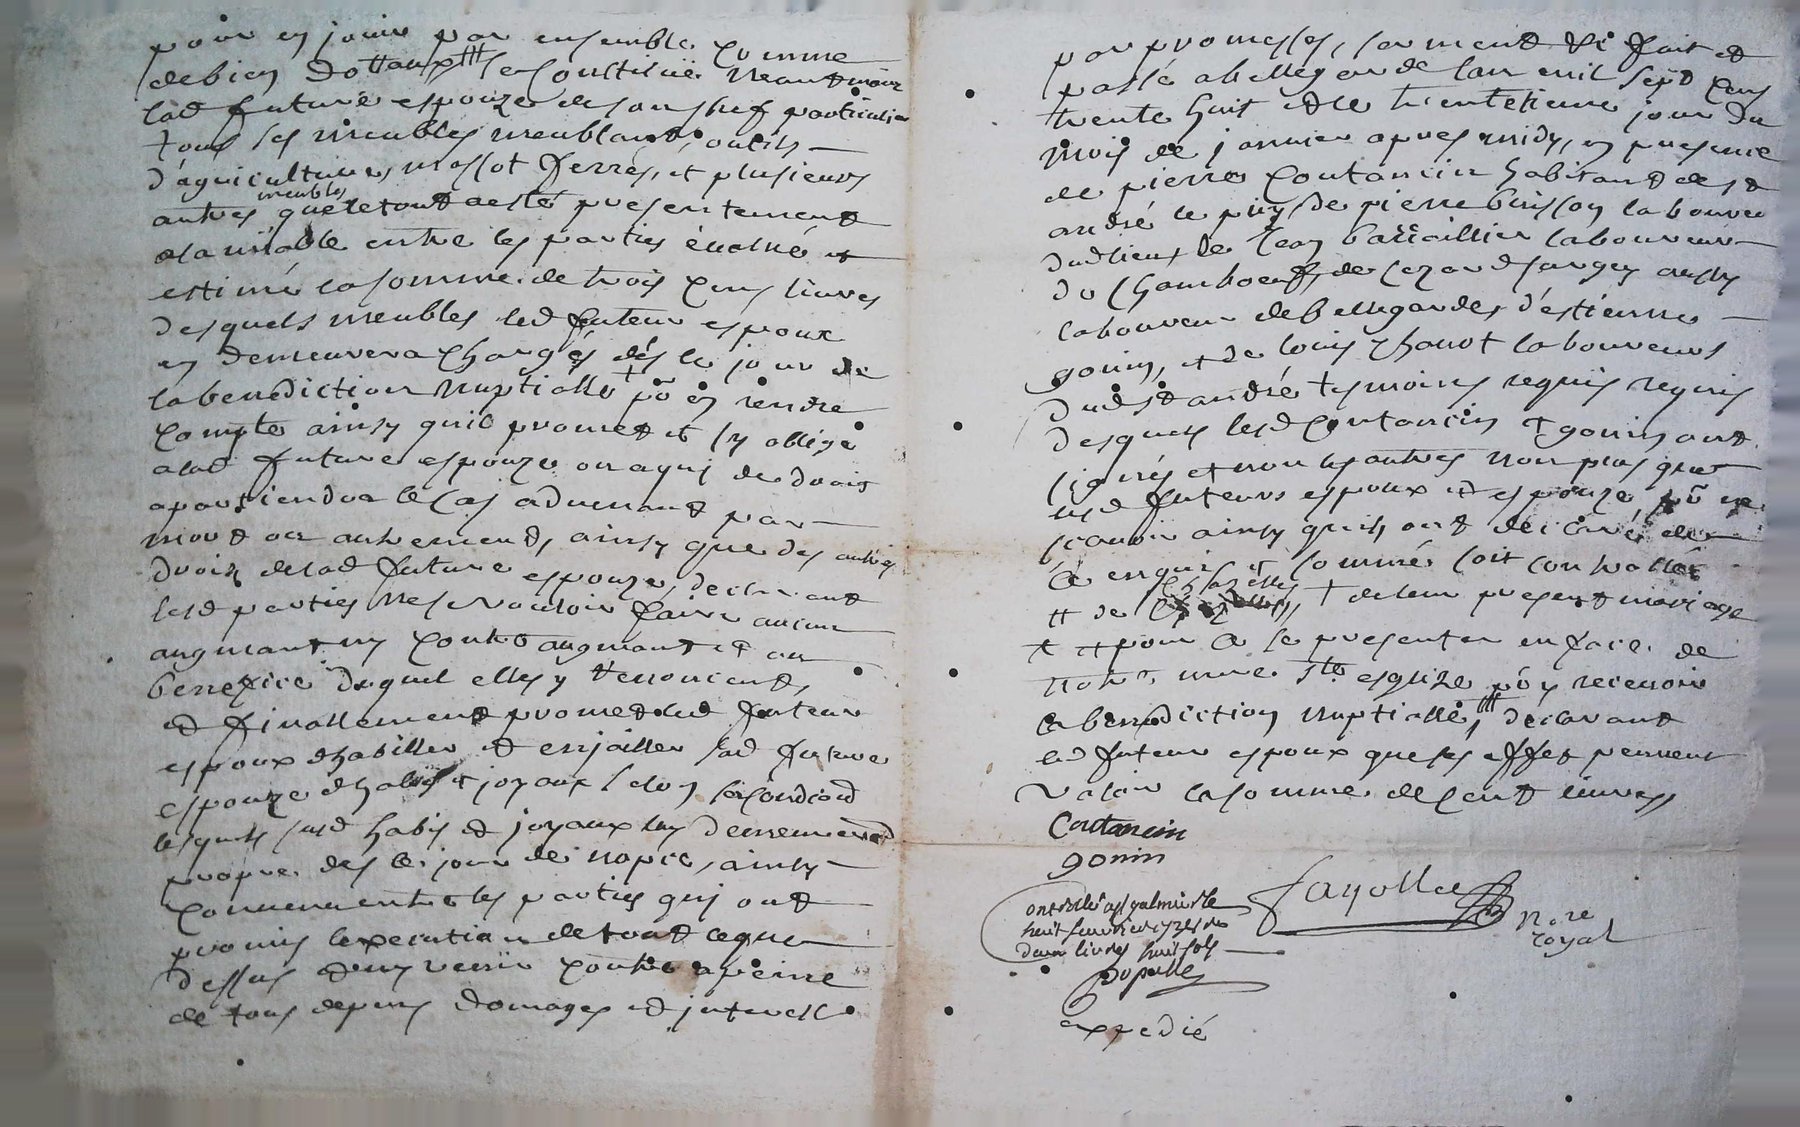 pour en jouir par ensemble comme
de biens dottaux se constitue neantmoins
lad future espouze de son chef particulier
tous ses meubles meublant, outils
d'agriculture, ferrés, et plusieurs
autres meubles que le tout a esté presentement
a lamiable entre les parties évalué et
estimé la somme de trois cens livres
desquels meubles led futeur espoux
en demeurera chargés dés le jour de
la benediction nuptialle + pō en rendre
compte ainsy quil promet et sy oblige
a lad future espouze ou a qui de droit
apartiendra le cas advenant par
mort ou autrement, ainsy que des autres
droits de lad future espouze, declarant
lesd parties ne vouloir faire aucun
augmant ny contre augmant et au
benefice duquel elles y renoncent,
et finallement promet led futeur
espoux dhabiller et enjailler sad future
espouze dhabis et joyaux selon sa condiond
lesquels susd habis et joyaux luy demeureront
propre des le jour de nopce, ainsy
convenu entre les parties qui ont
promis lexecution de tout ce que
dessus et ny venir contre a peine
de tous depens domages et interest
par promesses, serment &c fait et
passé a bellegarde lan mil sept cens
trente huit et le trentetieme jour du
mois de janvier apres midy, en presence
de pierre Coutancin habitant de st
andré le puy, de pierre buisson laboureur
dud lieu, de Jean laboureur
de Chamboeuf, de cezar aussy
laboureur de bellegarde, d'estienne
gonin, et de louis laboureurs
dud st andré tesmoins requis requis
desquels lesd Coutancin et gonin ont
signés et non les autres non plus que
lesd futeurs espoux et espouze pō ne
scavoir ainsy quils ont declaré de
ce enquis et sommé soit controllé
tt de + de leur present mariage
+ et pour ce se presenter en face de
notre mere ste esglize pō y recevoir
la benediction nuptialle, declarant
led futeur espoux que ses effet peuvent
valoir la somme de cent livres
Coutancin
gonin
fayolle
nore
royal
controllé a st galmier le
huit fevrier 1738 recu
deux livres huit sols
expedié